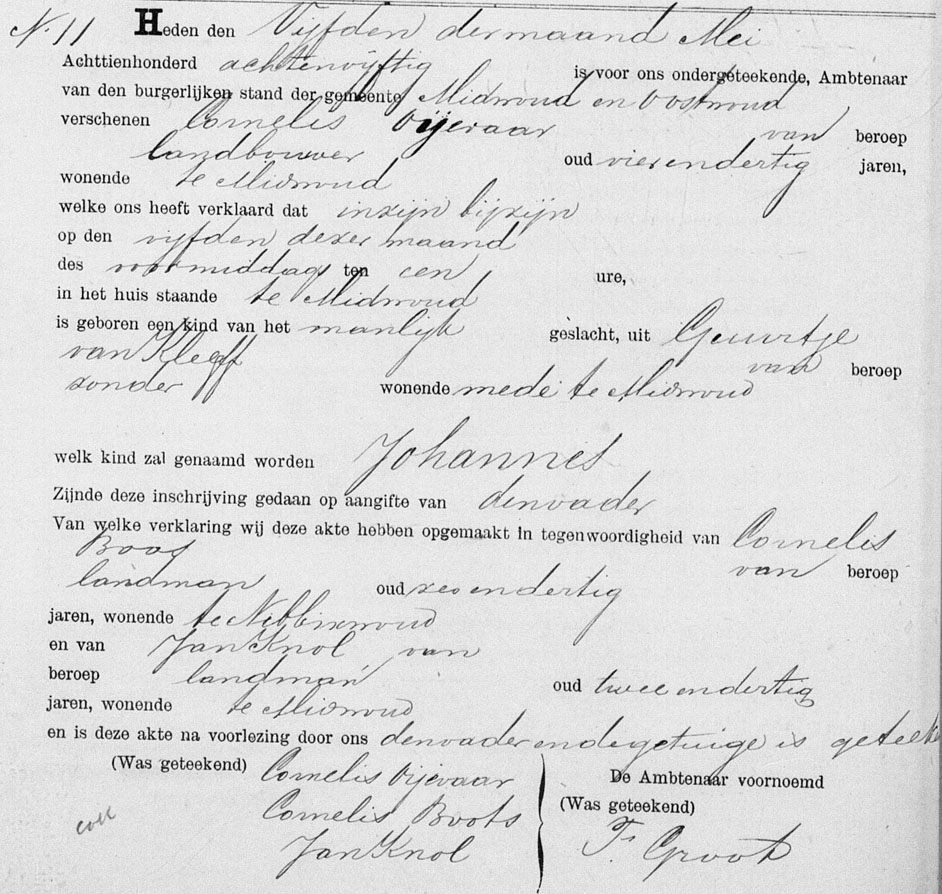 N. 11 Heden den Vijfden der maand Mei
Achttienhonderd achtenvijftig is voor ons ondergeteekende, Ambtenaar
van den burgerlijken stand der gemeente Midwoud en Oostwoud
verschenen Cornelis Oijevaar van beroep
landbouwer oud vier en dertig jaren,
wonende te Midwoud
welke ons heeft verklaard dat in zijn bijzijn
op den vijfden dezer maand
des voormiddags ten een ure,
in het huis staande te Midwoud
is geboren een kind van het manlijk geslacht, uit Geuurtje
van Kleeff van beroep
zonder wonende mede te Midwoud
welk kind zal genaamd worden Johannes
Zijnde deze inschrijving gedaan op aangifte van den vader
Van welke verklaring wij deze akte hebben opgemaakt in tegenwoordigheid van Cornelis
van beroep
landman oud zes en dertig
jaren, wonende te Nibbixwoud
en van Jan Knol van
beroep landman oud twee en dertig
jaren, wonende te Midwoud
en is deze akte na voorlezing door ons den vader en de getuige is
(Was geteekend) Cornelis Oijevaar De Ambtenaar voornoemd
Cornelis Boots (Was geteekend)
Jan Knol F. Groot